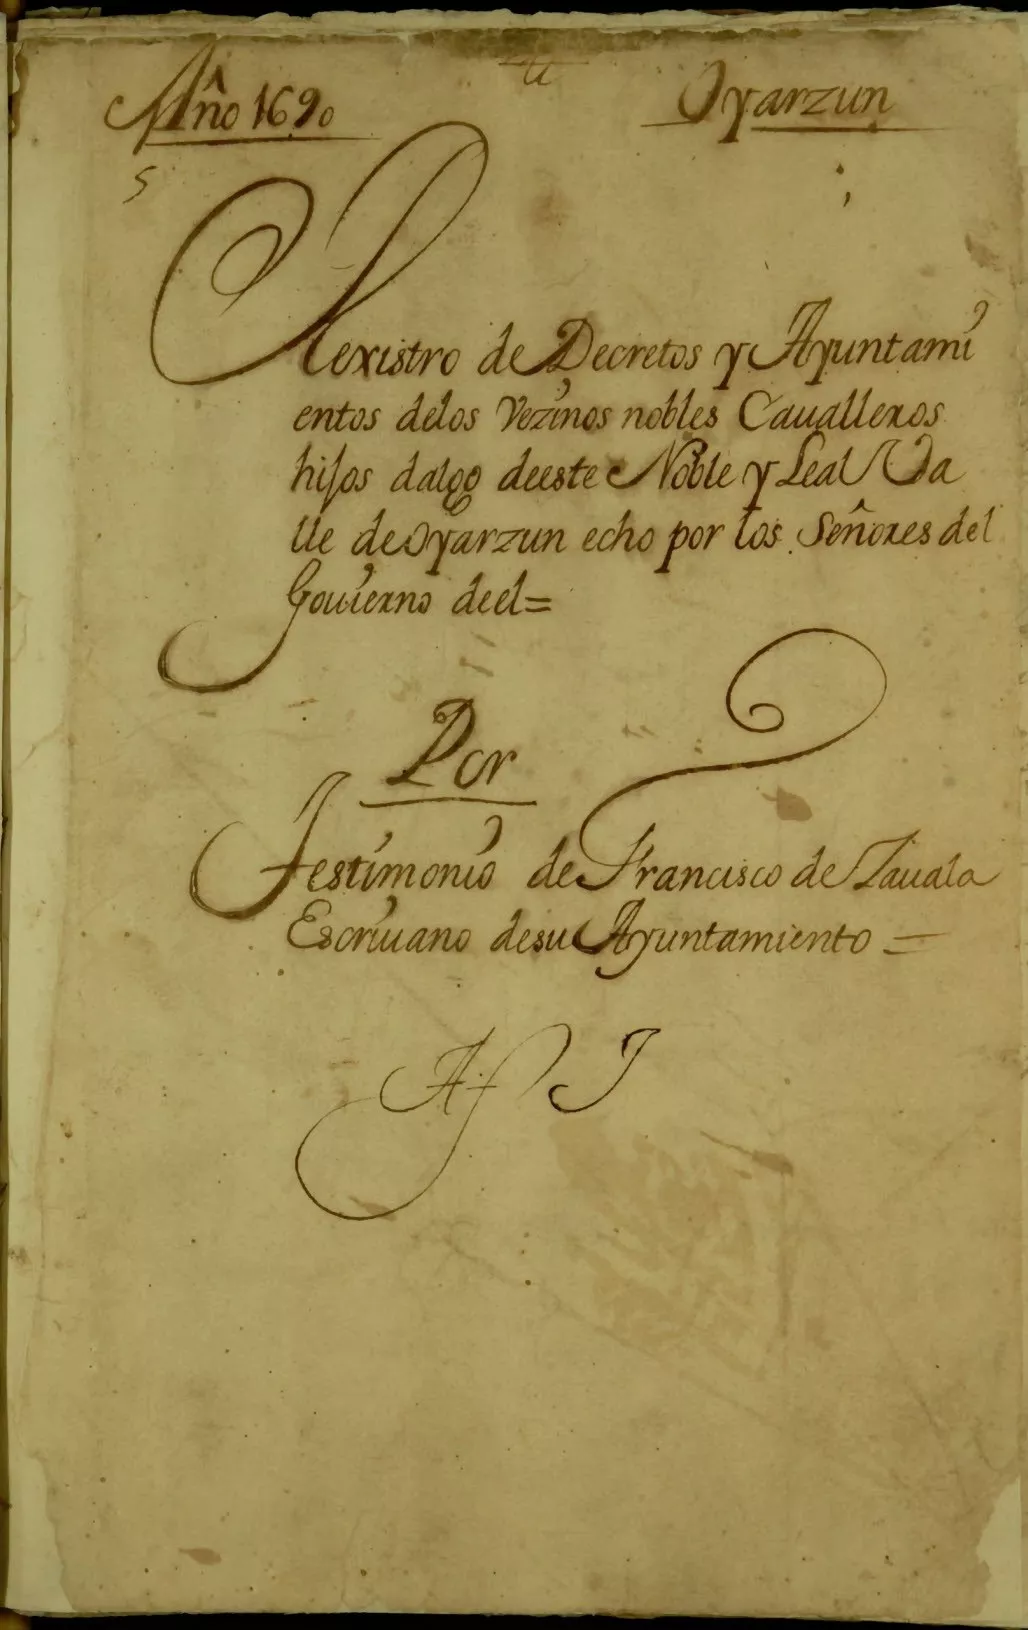 Año 1690
Oyarzun
5
Rexistro de Decretos y Ayuntami
entos delos Vezinos nobles Caualleros
hijos dalgo deeste Noble y Leal Va
lle de Oyarzun echo por los Señores del
Gouierno deel=
Por
Testimonio de Francisco de Zauala
Escriuano desu Ayuntamiento =